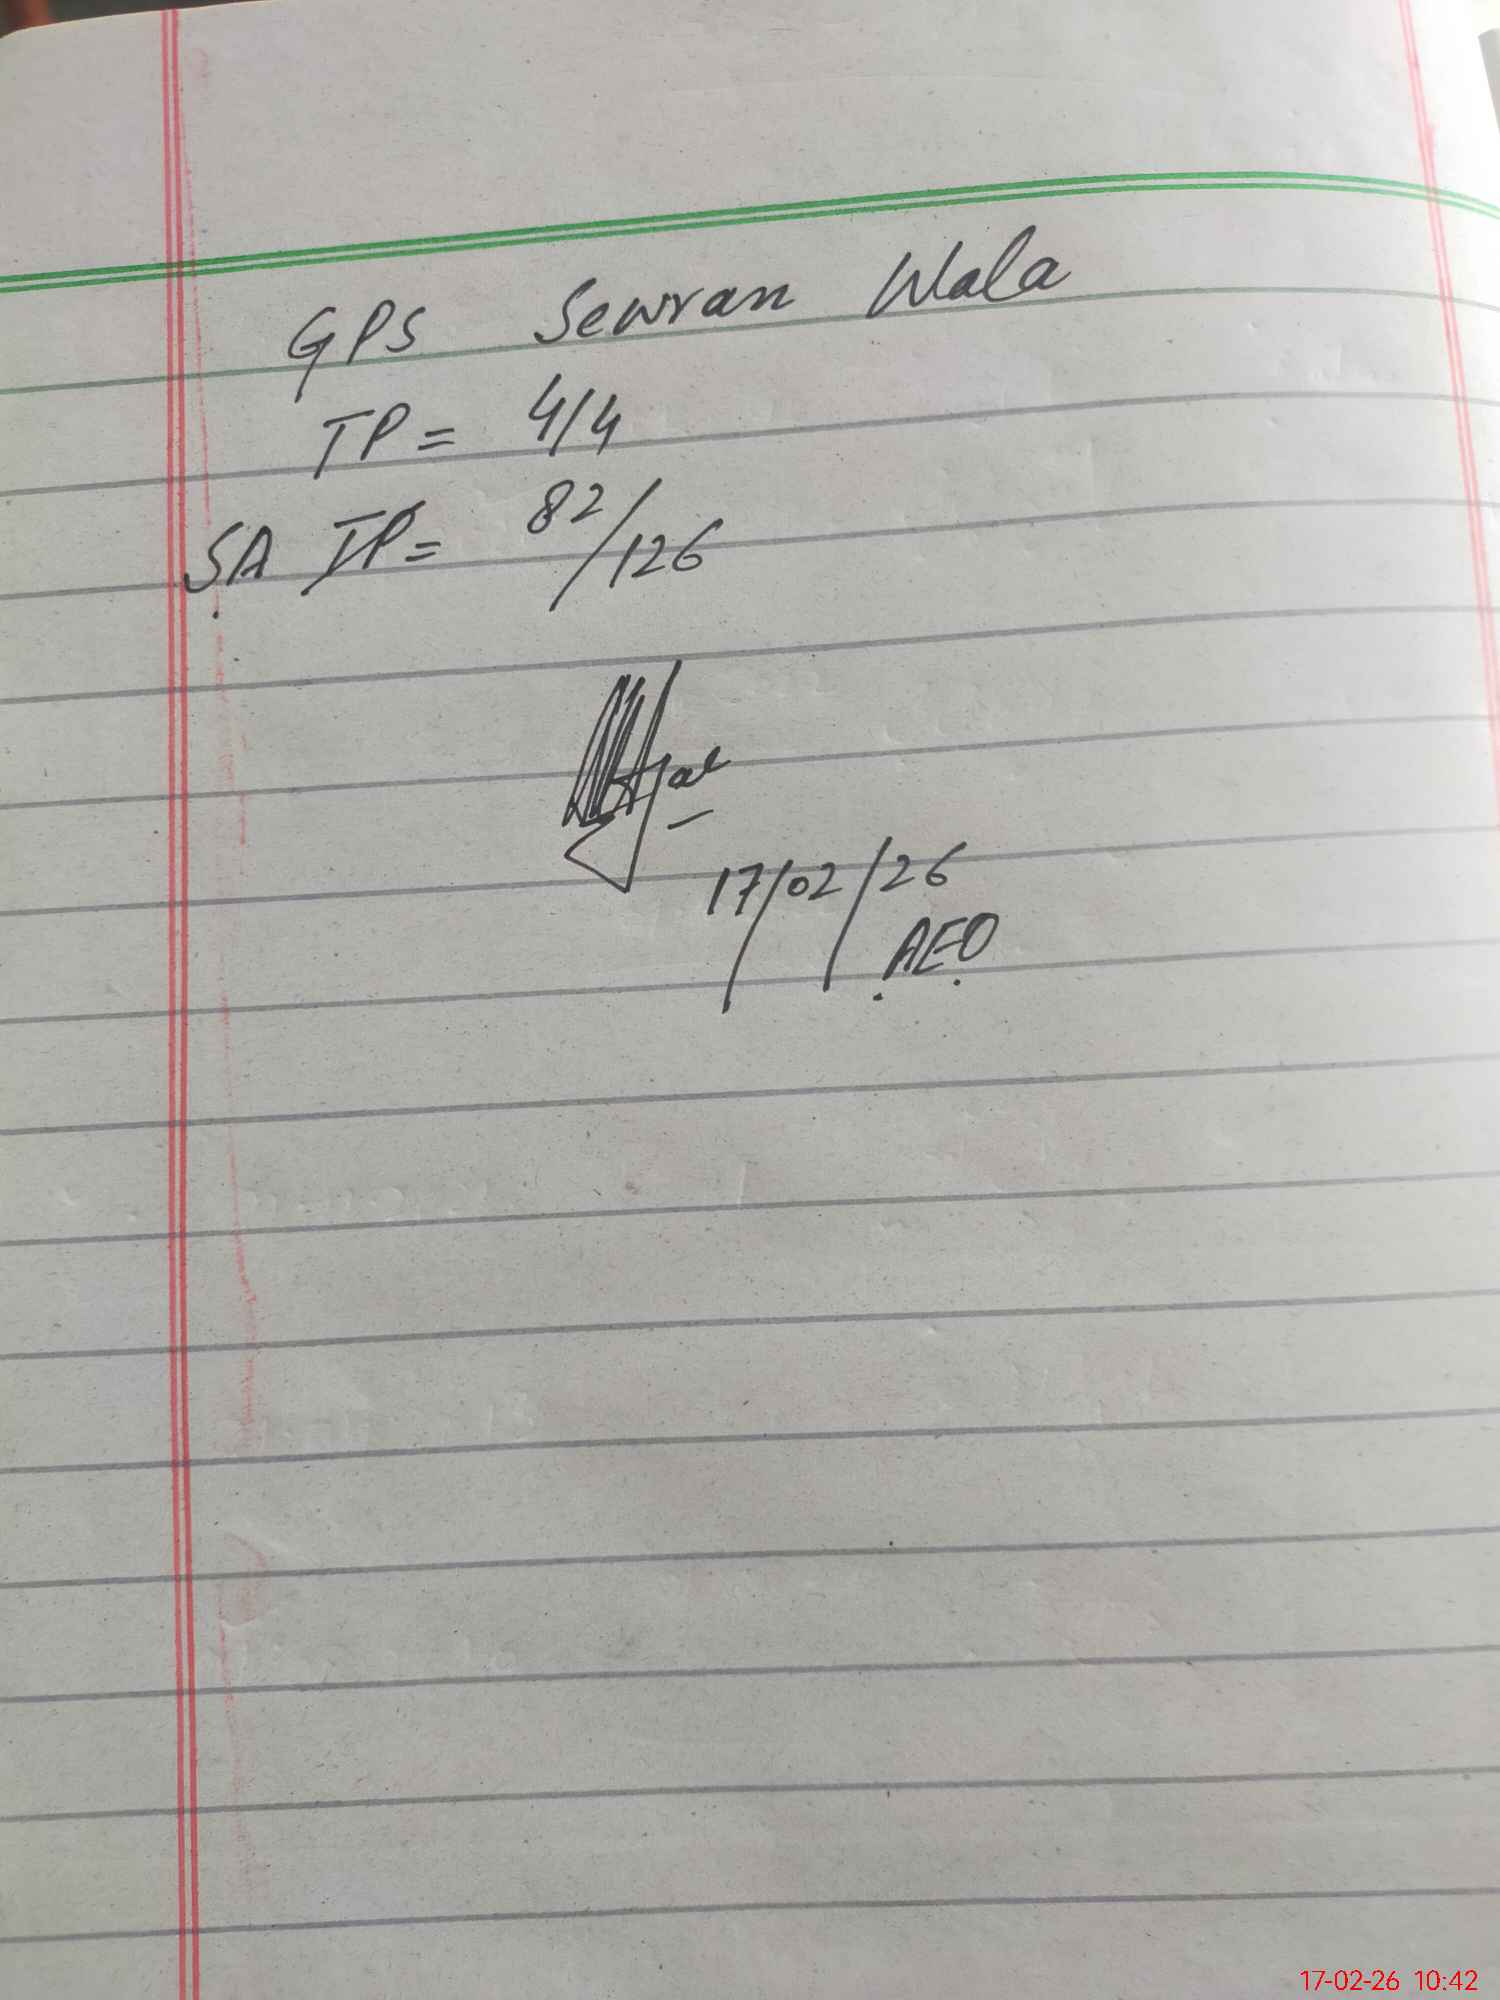 GPS Sewran Wala
TP = 4/4
SA TP = 82/126
17/02/26
AEO
17-02-26 10:42